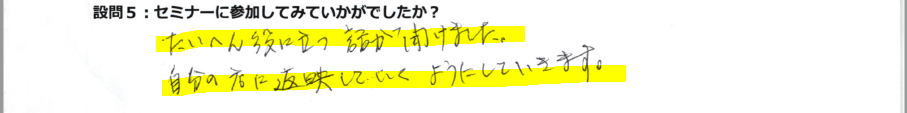 設問5：セミナーに参加してみていかがでしたか？
たいへん役に立つ話が聞けました。
自分の店に返映していくようにしていきます。